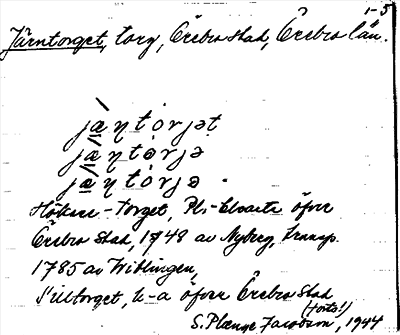 1-5
Järntorget, torg, Örebro stad, Örebro län.
jæ̀ṇtȯrjət
jæ̀ṇtȯrjə
jæ̀ṇtȯrjə.
Hökare-Torget, Pl.-Charta öfver
Örebro Stad, 1748 av Nyberg, transp.
1785 av Wiblingen,
Silltorget, k-a öfver Örebro Stad
(forts!)
S. Plange Jacobson, 1944